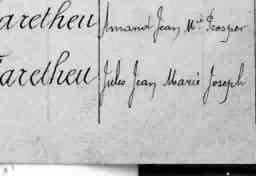 aretheu Amand Jean Mie Prosper
Taretheu Jules Jean Marie Joseph